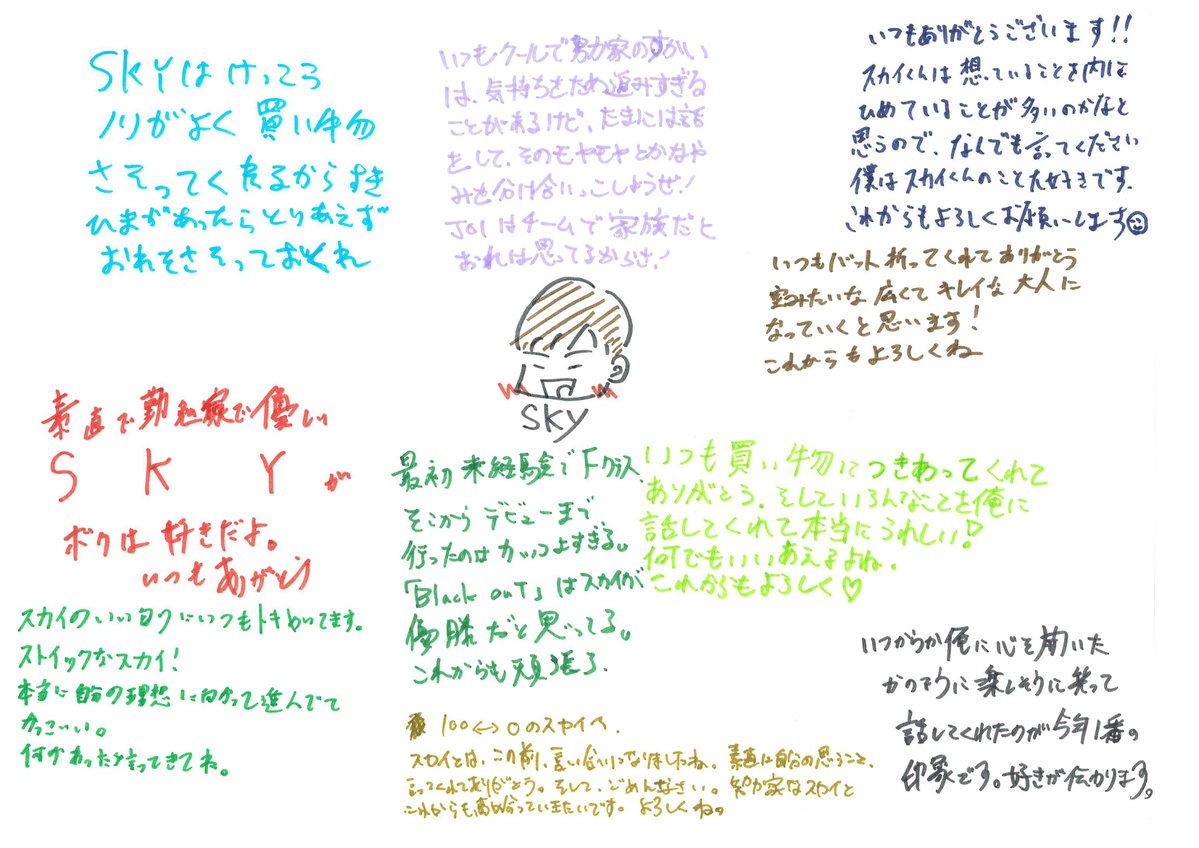 SKYはけっこう
ノリがよく買い物
さそってくれるからすき
ひまがあったらとりあえず
おれをさそっておくれ
いつもクールで努力家のすかい
は、気持ちをため込みすぎる
ことがあるけど、たまには話
をして、そのモヤモヤとかなや
みを分け合いっこしようぜ!
JO1はチームで家族だと
おれは思ってるからさ!
いつもありがとうございます!!
スカイくんは想っていることを内に
ひめていることが多いのかなと
思うので、なんでも言ってください
僕はスカイくんのこと大好きです。
これからもよろしくお願いします☺
いつもバット折ってくれてありがとう
空みたいな広くてキレイな大人に
なっていくと思います!
これからもよろしくね
SKY
素直で勤勉家で優しい
SKYが
ボクは好きだよ。
いつもありがとう
最初未経験でFクラス、
そこからデビューまで
行ったのはカッコよすぎる。
「Black out」はスカイが
優勝だと思ってる。
これからも頑張ろ
いつも買い物につきあってくれて
ありがとう。そしていろんなことを俺に
話してくれて本当にうれしい!
何でもいいあえるよね。
これからもよろしく♡
スカイのいい匂いにいつもトキめいてます。
ストイックなスカイ!
本当に自分の理想に向かって進んでて
かっこいい。
何かあったら言ってきてね。
100↔0のスカイへ.
スカイとは、この前、言い合いになりましたね。素直に自分の思うこと、
言ってくれてありがとう。そして、ごめんなさい。努力家なスカイと
これからも高め合っていきたいです。よろしくね。
いつからか俺に心を開いた
かのように楽しそうに笑って
話してくれたのが今年1番の
印象です。好きが伝わります。